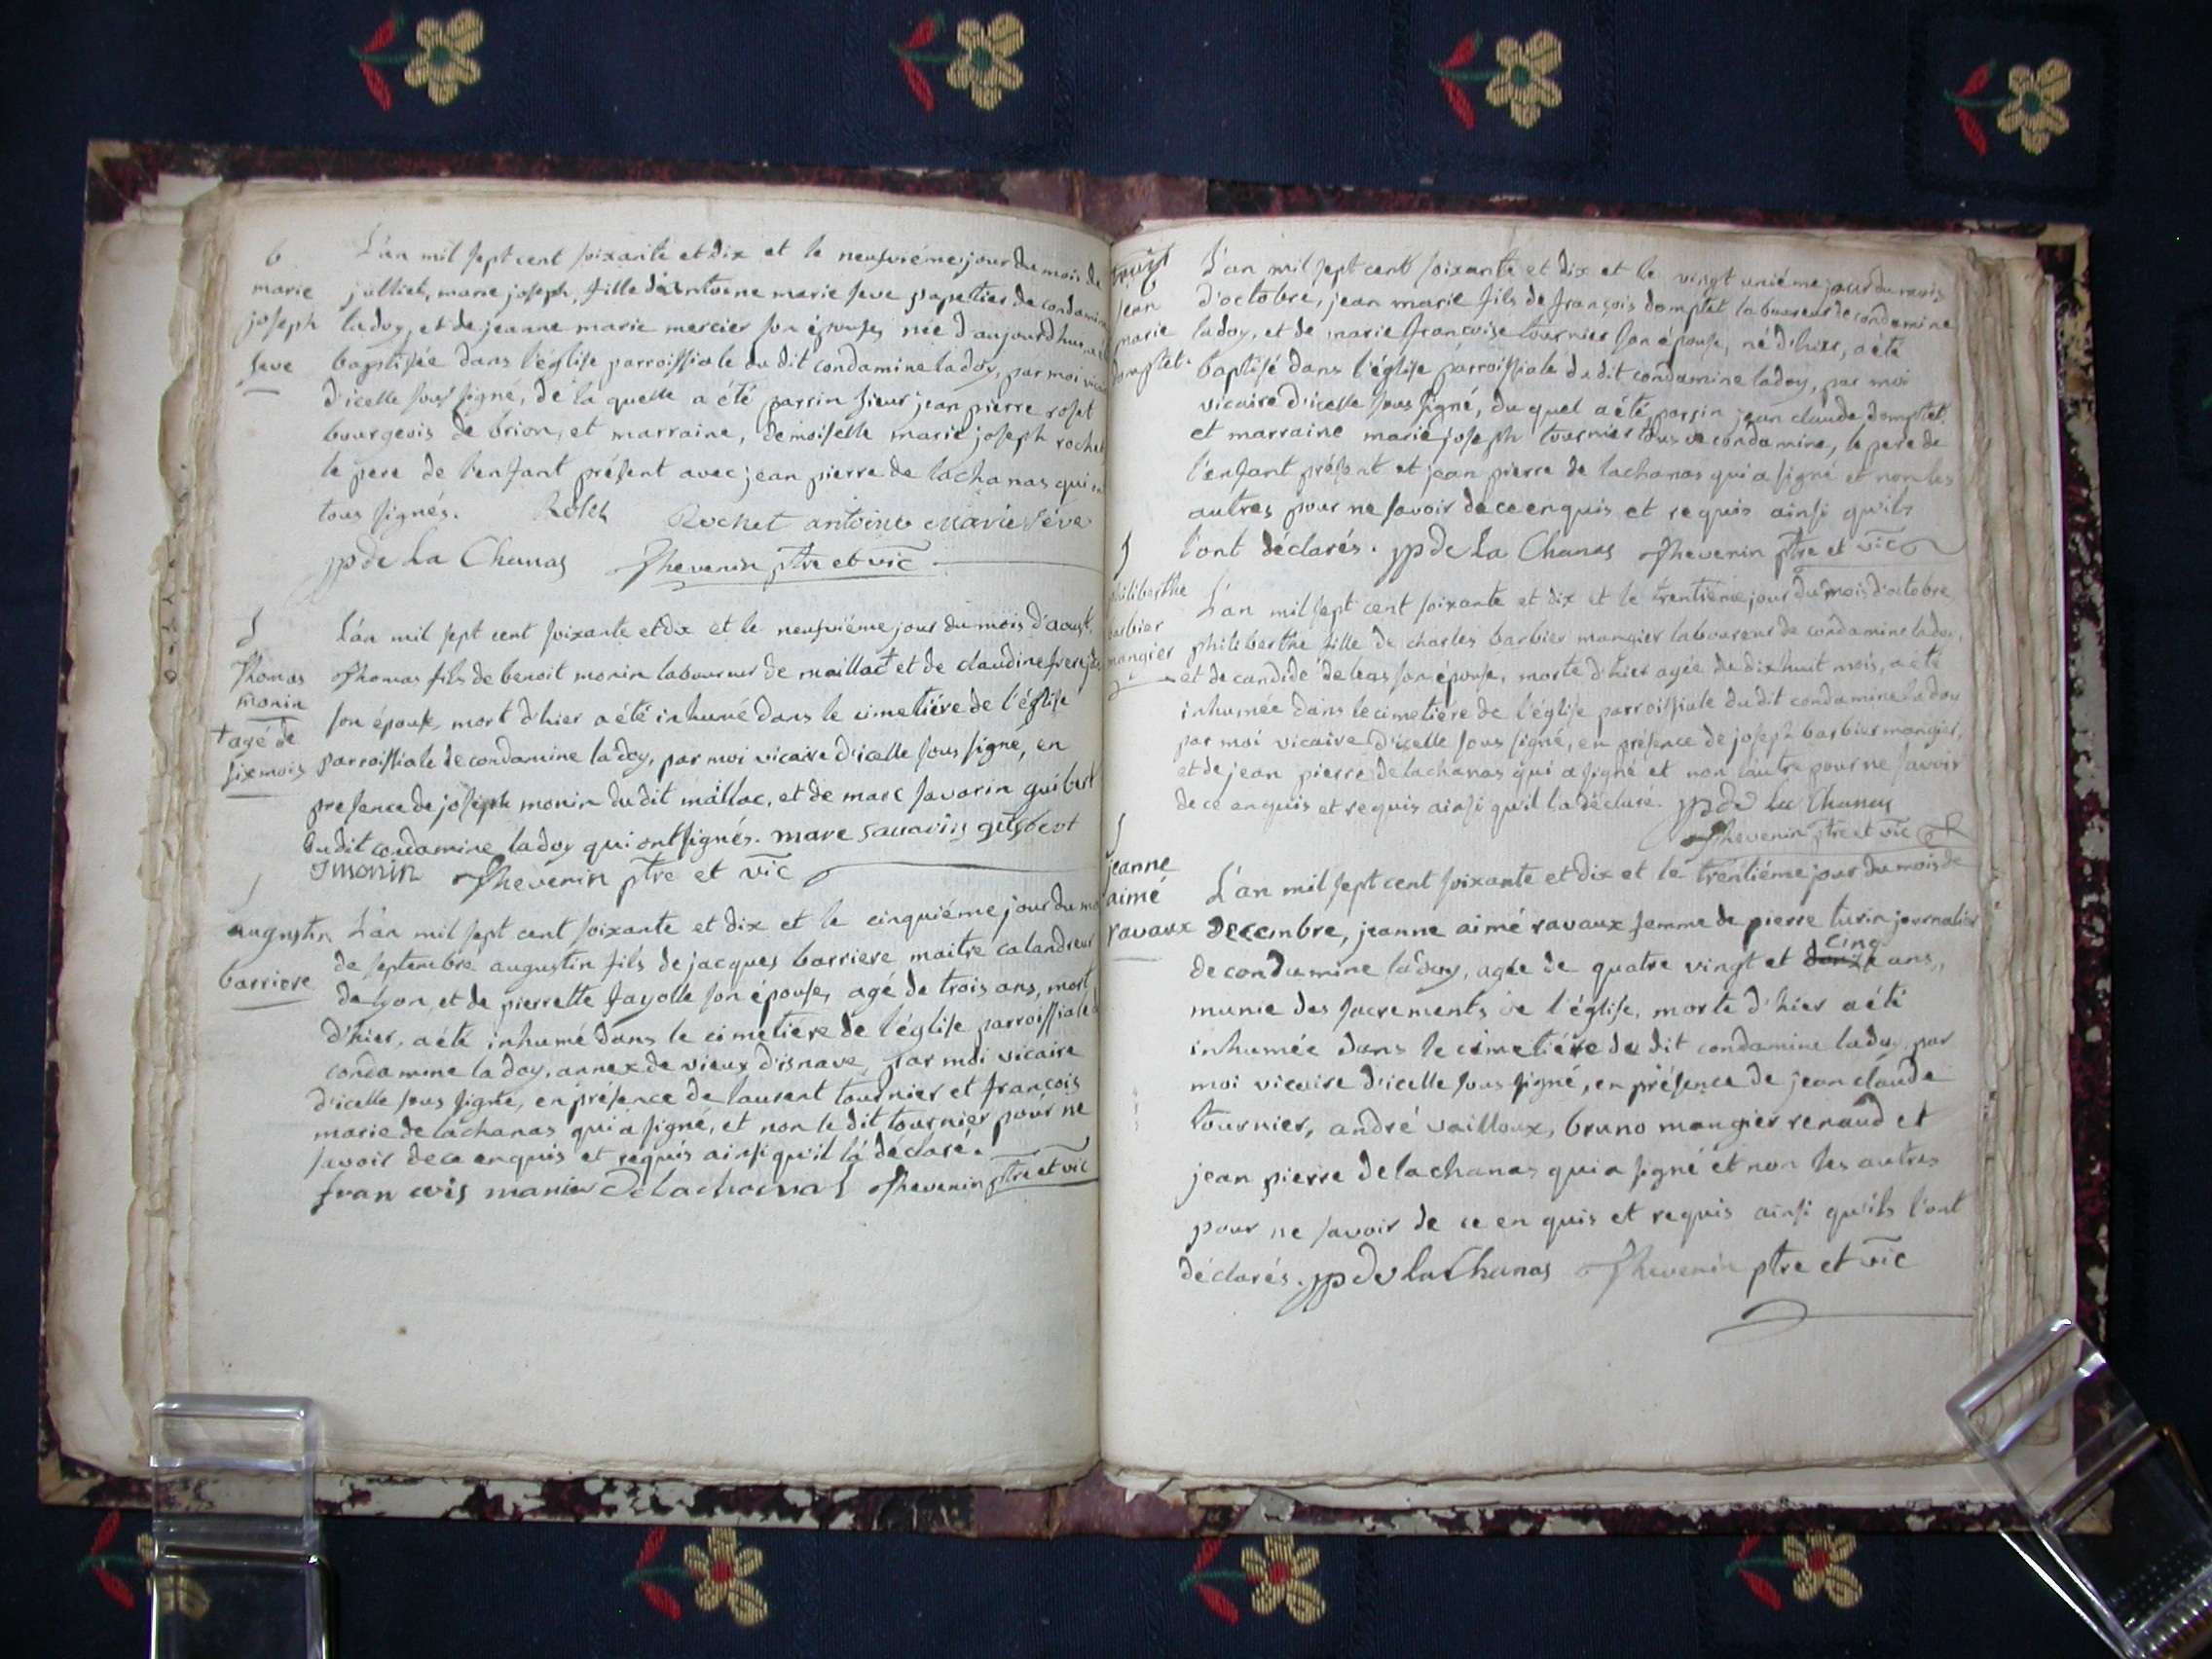 b
marie
joseph
seve
L'an mil sept cent soixante et dix et le neufviéme jour du mois de
julliet, marie joseph, fille d'antoine marie seve papettier de condamine
ladoy, et de jeanne marie mercier son épouse, née d'aujourdhuy, a été
baptisée dans l'église parroissiale du dit condamine ladoy, par moi vicaire
d'icelle sous signé, de la quelle a été parrin sieur jean pierre roset
bourgeois de brion, et marraine, demoiselle marie joseph rochet
le pere de l'enfant présent avec jean pierre de lachanas qui
tous signés. Roset Rochet antoine marie séve
jp de La Chanas Thevenin ptre et vic
S
Thomas
monin
+ agé de
six mois
L'an mil sept cent soixante et dix et le neufviéme jour du mois d'aoust
Thomas fils de benoit monin laboureur de maillat et de claudine frerejean
son épouse, mort d'hier a été inhumé dans le cimetiére de l'église
parroissiale de condamine ladoy, par moi vicaire d'icelle sous signé, en
presence de joseph monin du dit maillac, et de marc savarin guibert
du dit condamine ladoy qui ont signés. marc savarin guibert
J monin Thevenin ptre et vic
S
augustin
barriere
L'an mil sept cent soixante et dix et le cinquiéme jour du mois
de septembre augustin fils de jacques barriere maitre calandreur
de lyon, et de pierrette fayolle son épouse, agé de trois ans, mort
d'hier, a été inhumé dans le cimetiére de l'église parroissiale
condamine ladoy, annex de vieux d'isnave, par moi vicaire
d'icelle sous signé, en présence de laurent tournier et françois
marie de lachanas qui a signé, et non le dit tournier pour ne
savoir de ce enquis et requis ainsi qu'il la déclaré.
francois marie Delachanas Thevenin ptre et vic
jean
marie
domptet
L'an mil sept cent soixante et dix et le vingt uniéme jour du mois
d'octobre, jean marie fils de françois domptet laboureur de condamine
ladoy, et de marie françoise tournier son épouse, né d'hier, a été
baptisé dans l'église parroissiale du dit condamine ladoy, par moi
vicaire d'icelle sous signé, du quel a été parrin jean claude domptet
et marraine marie joseph tournier tous de condamine, le pere de
l'enfant présent et jean pierre de lachanas qui a signé et non les
autres pour ne savoir de ce enquis et requis ainsi qu'ils
l'ont déclarés. jp de La Chanas Thevenin ptre et vic
S
philiberthe
barbier
mangier
L'an mil sept cent soixante et dix et le trentiéme jour du mois d'octobre,
philiberthe fille de charles barbier mangier laboureur de condamine ladoy,
et de candide deleas son épouse, morte d'hier agée de dix huit mois, a été
inhumée dans le cimetiére de l'église parroissiale du dit condamine ladoy
par moi vicaire d'icelle sous signé, en présence de joseph barbier mangier,
et de jean pierre delachanas qui a signé et non l'autre pour ne savoir
de ce enquis et requis ainsi qu'il la déclaré. jp de La Chanas
Thevenin ptre et vic
S
jeanne
aimé
ravaux
L'an mil sept cent soixante et dix et le trentiéme jour du mois de
decembre, jeanne aimé ravaux femme de pierre turin journalier
cinq
de condamine ladoy, agée de quatre vingt et douze ans,
munie des sacrements de l'église, morte d'hier a été
inhumée dans le cimetiére du dit condamine ladoy, par
moi vicaire d'icelle sous signé, en présence de jean claude
tournier, andré vailloux, bruno mangier renaud et
jean pierre delachanas qui a signé et non les autres
pour ne savoir de ce enquis et requis ainsi qu'ils l'ont
déclarés. jp de La Chanas Thevenin ptre et vic